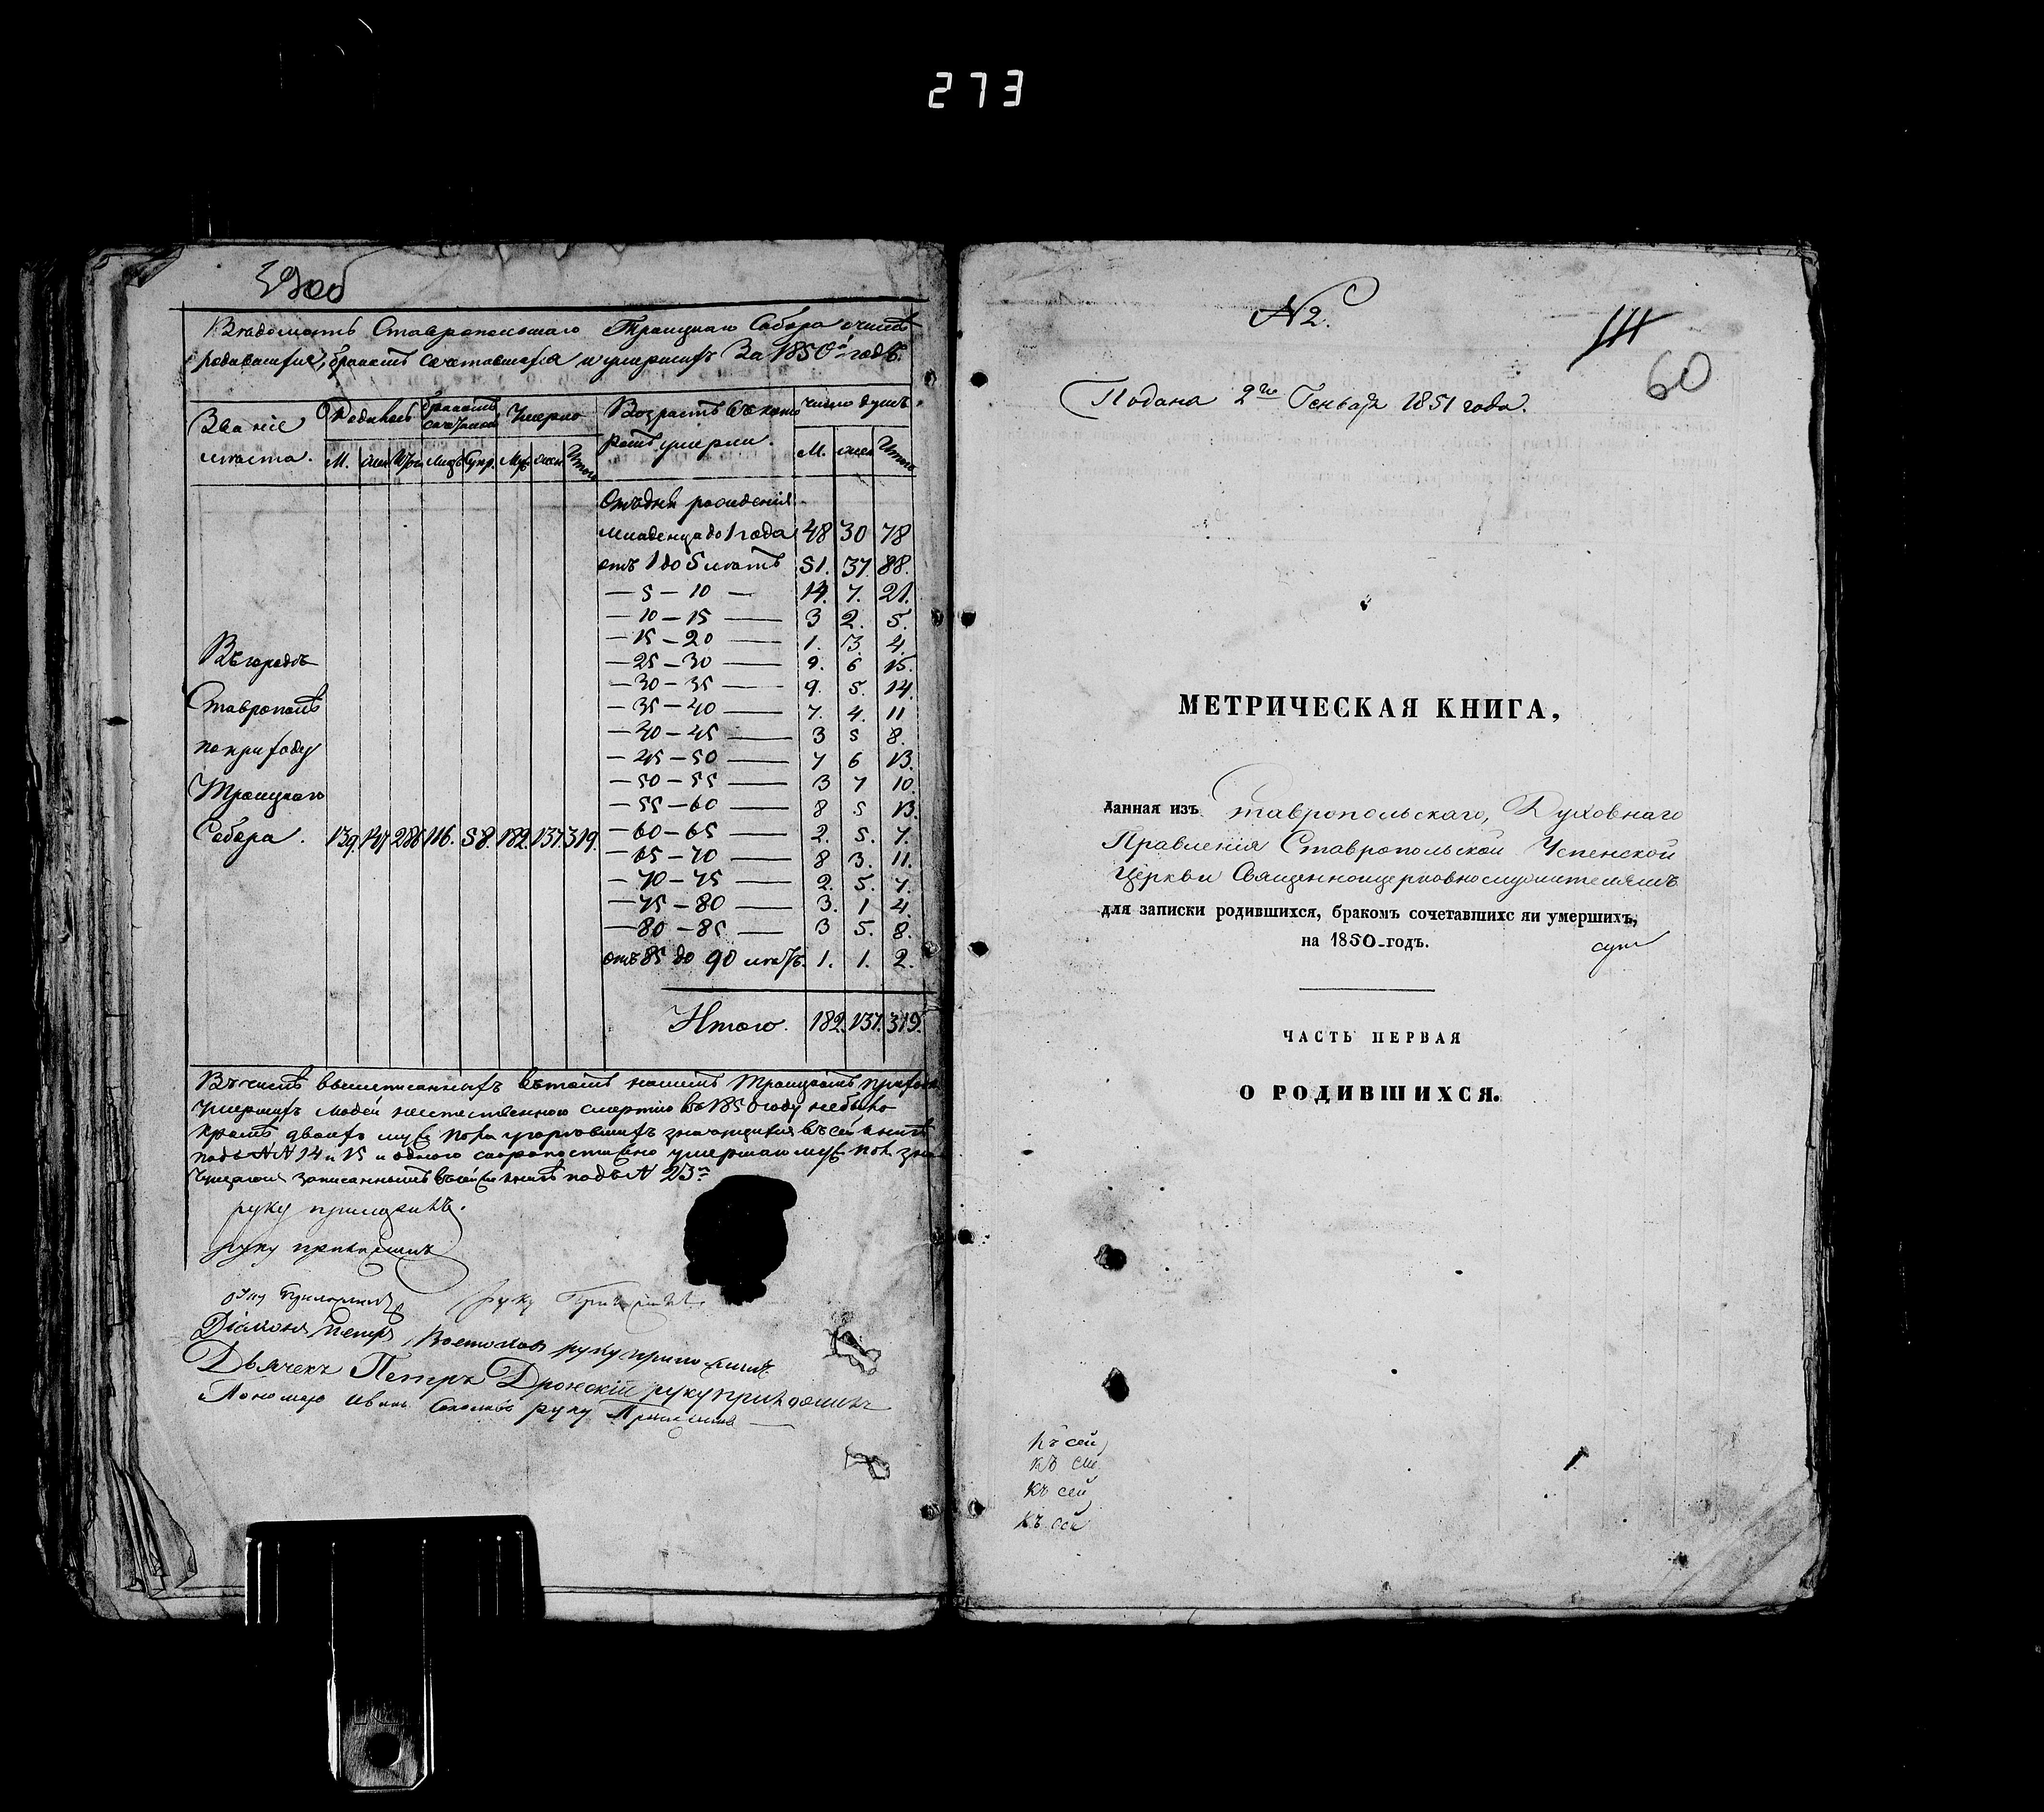 273
59об
Вѣдомость Ставропольскаго Троицкаго Собора о числѣ
родившихся, бракомъ сочетавшихся и умершихъ За 1850й годъ.
Званіе мѣста. Родилось Бракомъ сочеталось Умерло Возрастъ въ кото ромъ умерли. число душъ
М. жен Итого лицъ Супр. Муж жен Итого М. жен Итого
Отъ дня рожденія
младенца до 1 года 48 30 78
отъ 1 до 5 лѣтъ 51. 37. 88.
— 5 — 10 — 14. 7. 21.
— 10 — 15 — 3 2. 5.
— 15 — 20 — 1. 3. 4.
— 25 — 30 — 9. 6 15.
— 30 — 35 — 9. 5. 14.
— 35 — 40 — 7. 4. 11
— 40 — 45 — 3 5 8.
— 45 — 50 — 7 6 13.
— 50 — 55 — 3 7 10.
— 55 — 60 — 8 5 13.
— 60 — 65 — 2. 5. 7.
— 65 — 70 — 8 3. 11.
— 70 — 75 — 2. 5. 7.
— 75 — 80 — 3. 1 4.
— 80 — 85 — 3 5. 8.
отъ 85 до 90 лѣтъ. 1. 1. 2.
Въ городѣ
Ставрополѣ
по приходу
Троицкаго
Собора. 139. 147 286 116. 58. 182. 137. 319.
Итого. 182. 137. 319.
Въ числѣ вышеписанныхъ въ томъ нашемъ Троицкомъ приходѣ
Умершихъ людей неестественною смертію въ 1850 году небыло
кромѣ двоихъ муж пола значащихся въ сей книгѣ
подъ №№ 14 и 15 и одного скоропостижно умершаго муж пол
записаннымъ въ сей книгѣ подъ № 23м
руку приложилъ.
руку приложилъ
руку приложилъ руку Приложилъ.
Діаконъ Петръ Востоковъ руку приложилъ
Дьячекъ Петръ Дронскій руку приложилъ
Пономарь Иванъ Соколовъ руку Приложилъ
№ 2.
60
Подана 2го Генваря 1851 года.
МЕТРИЧЕСКАЯ КНИГА,
данная изъ Ставропольскаго, Духовнаго
Правленія Ставропольской Успенской
Церкви Священноцерковнослужителямъ
для записки родившихся, бракомъ сочетавшихс яи умершихъ,
на 1850-годъ.
ЧАСТЬ ПЕРВАЯ
О РОДИВШИХСЯ.
Къ сей
Къ сей
Къ сей
Къ сей